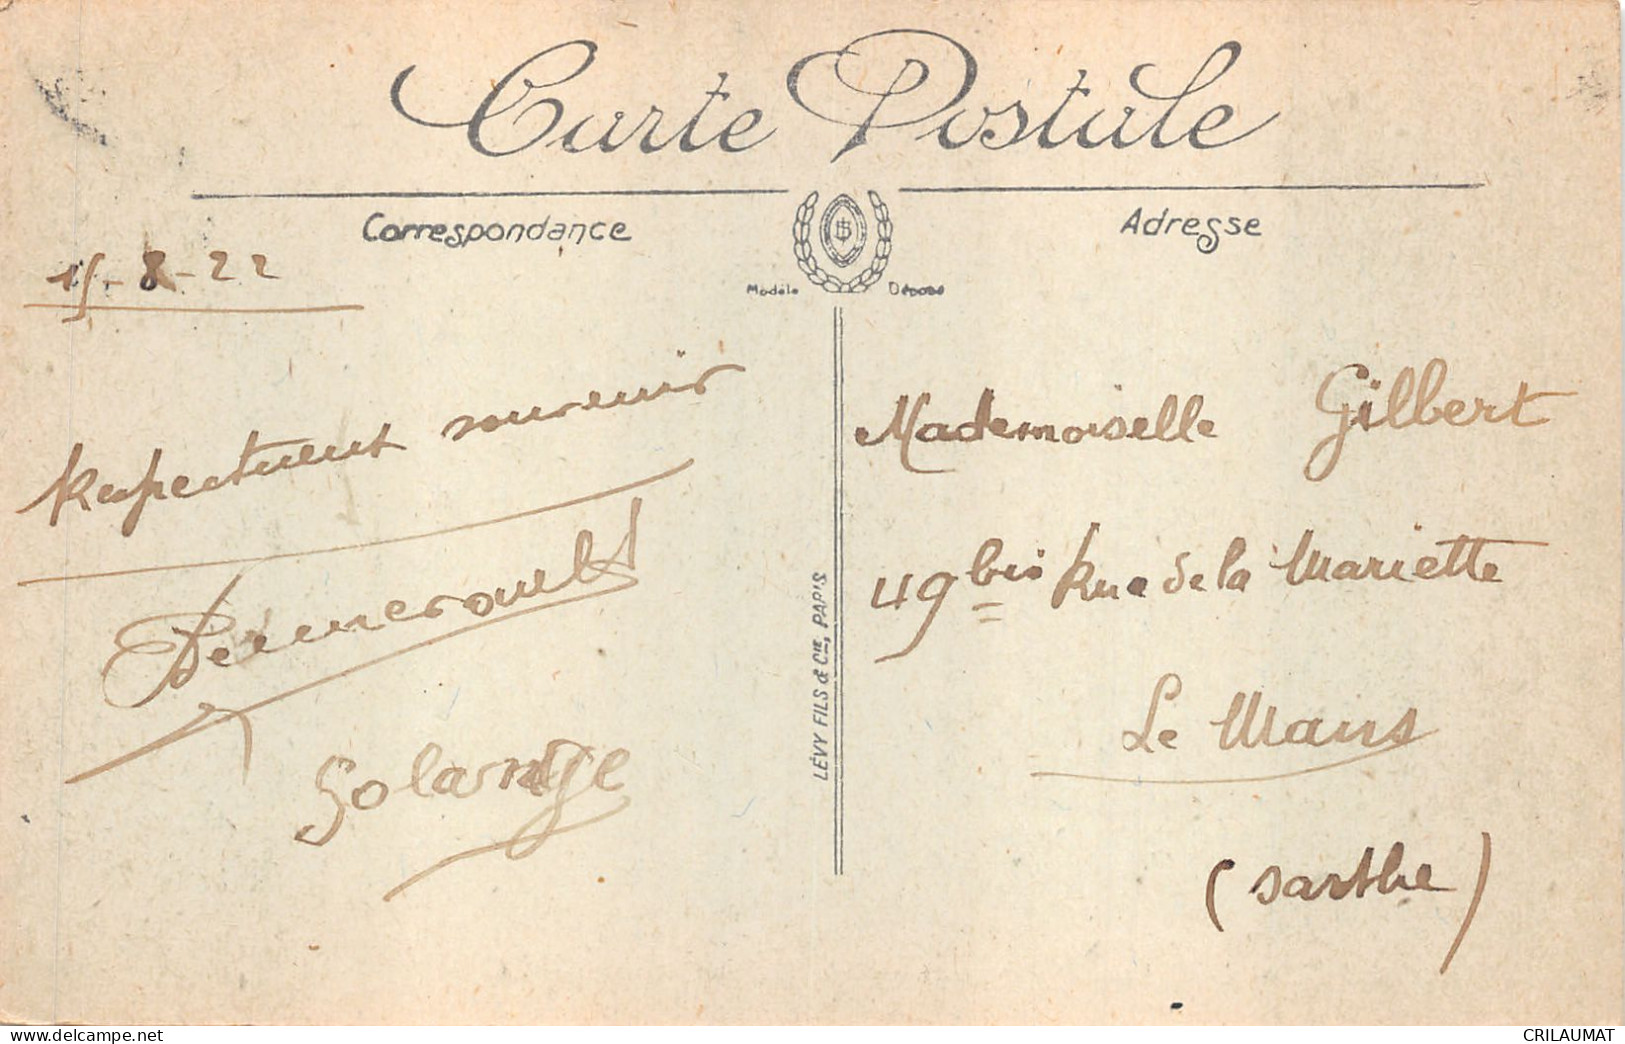 Carte Postale
Correspondance
Adresse
Modèle Déposé
15-8-22
Respectueux souvenir
Solange
LÉVY FILS & Cie, PARIS
Mademoiselle Gilbert
49 bis Rue de la Mariette
Le Mans
(Sarthe)
www.delcampe.net
CRILAUMAT